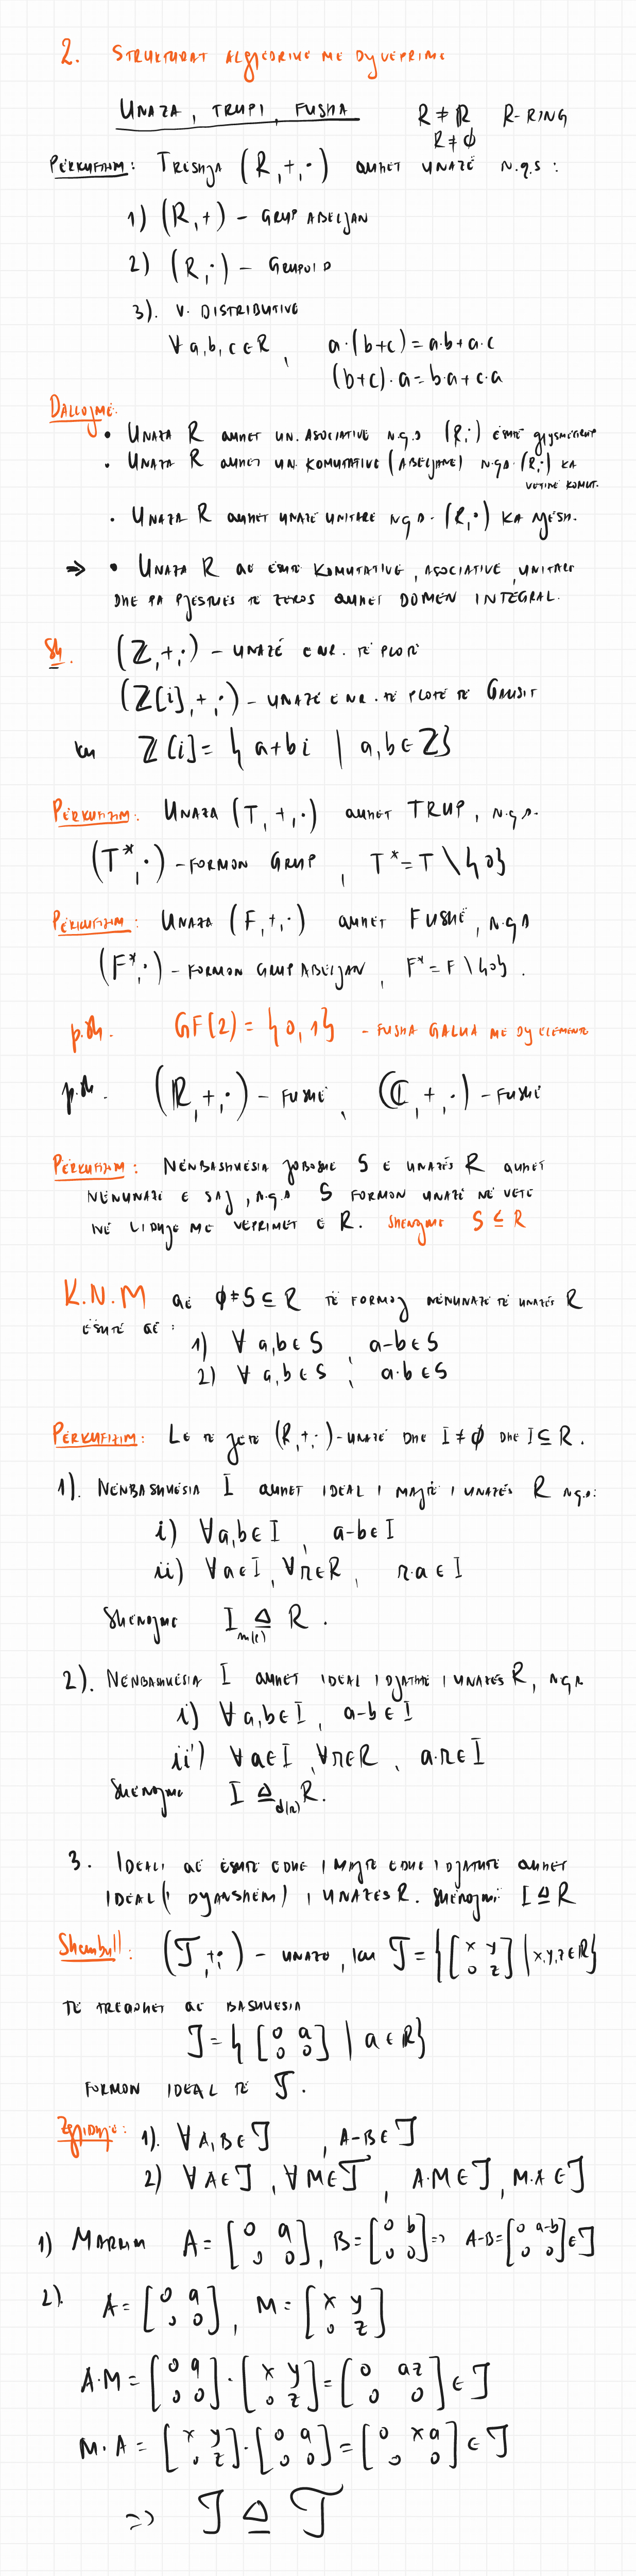 2. STRUKTURAT ALGJEBRIKE ME DY VEPRIME
UNAZA, TRUPI, FUSHA
R ≠ ℝ R-RING
R ≠ ∅
PËRKUFIZIM: TRESHJA (R,+,·) QUHET UNAZË N.Q.S:
1) (R,+) – GRUP ABELJAN
2) (R,·) – GRUPOID
3). V. DISTRIBUTIVE
∀a,b,c∈R, a·(b+c)=a·b+a·c
(b+c)·a=b·a+c·a
DALLOJMË:
• UNAZA R QUHET UN. ASOCIATIVE N.Q.S (R,·) ËSHTË GJYSMËGRUP
• UNAZA R QUHET UN. KOMUTATIVE (ABELJANE) N.Q.S. (R,·) KA
VETINË KOMUT.
• UNAZA R QUHET UNAZË UNITARE N.Q.S. (R,·) KA NJËSH.
→ • UNAZA R QË ËSHTË KOMUTATIVE, ASOCIATIVE, UNITARE
DHE PA PJESTUES TË ZEROS QUHET DOMEN INTEGRAL.
Sh. (ℤ,+,·) – UNAZË E NR. TË PLOTË
(ℤ[i],+,·) – UNAZË E NR. TË PLOTË TË GAUSIT
ku ℤ[i]={a+bi | a,b∈ℤ}
PËRKUFIZIM: UNAZA (T,+,·) QUHET TRUP, N.Q.S.
(T*,·) – FORMON GRUP, T*=T\{0}
PËRKUFIZIM: UNAZA (F,+,·) QUHET FUSHË, N.Q.S
(F*,·) – FORMON GRUP ABELJAN, F*=F\{0}.
p.sh. GF(2)={0,1} – FUSHA GALUA ME DY ELEMENTE
p.sh. (ℝ,+,·) – FUSHË, (ℂ,+,·) – FUSHË
PËRKUFIZIM: NËNBASHKËSIA JOBOSHE S E UNAZËS R QUHET
NËNUNAZË E SAJ, N.Q.S S FORMON UNAZË NË VETE
NË LIDHJE ME VEPRIMET E R. SHËNOJMË S ≤ R
K.N.M QË ∅≠S⊆R TË FORMOJ NËNUNAZË TË UNAZËS R
ËSHTË QË:
1) ∀a,b∈S, a-b∈S
2) ∀a,b∈S, a·b∈S
PËRKUFIZIM: LE TË JETË (R,+,·)-UNAZË DHE I≠∅ DHE I⊆R.
1). NËNBASHKËSIA I QUHET IDEAL I MAJTË I UNAZËS R N.Q.S:
i) ∀a,b∈I, a-b∈I
ii) ∀a∈I, ∀r∈R, r·a∈I
SHËNOJMË I ⊴m(l) R.
2). NËNBASHKËSIA I QUHET IDEAL I DJATHTË I UNAZËS R, N.Q.S
i) ∀a,b∈I, a-b∈I
ii') ∀a∈I, ∀r∈R, a·r∈I
SHËNOJMË I ⊴d(r) R.
3. IDEALI QË ËSHTË EDHE I MAJTË EDHE I DJATHTË QUHET
IDEAL (I DYANSHËM) I UNAZËS R. SHËNOJMË I ⊴ R
Shembull: (𝒯,+,·) – UNAZË, KU 𝒯={[x y; 0 z] | x,y,z∈ℝ}
TË TREGOHET QË BASHKËSIA
J={[0 a; 0 0] | a∈ℝ}
FORMON IDEAL TË 𝒯.
Zgjidhje: 1). ∀A,B∈J, A-B∈J
2) ∀A∈J, ∀M∈𝒯, A·M∈J, M·A∈J
1) MARRIM A=[0 a; 0 0], B=[0 b; 0 0] => A-B=[0 a-b; 0 0]∈J
2). A=[0 a; 0 0], M=[x y; 0 z]
A·M=[0 a; 0 0]·[x y; 0 z]=[0 az; 0 0]∈J
M·A=[x y; 0 z]·[0 a; 0 0]=[0 xa; 0 0]∈J
=> J ⊴ 𝒯